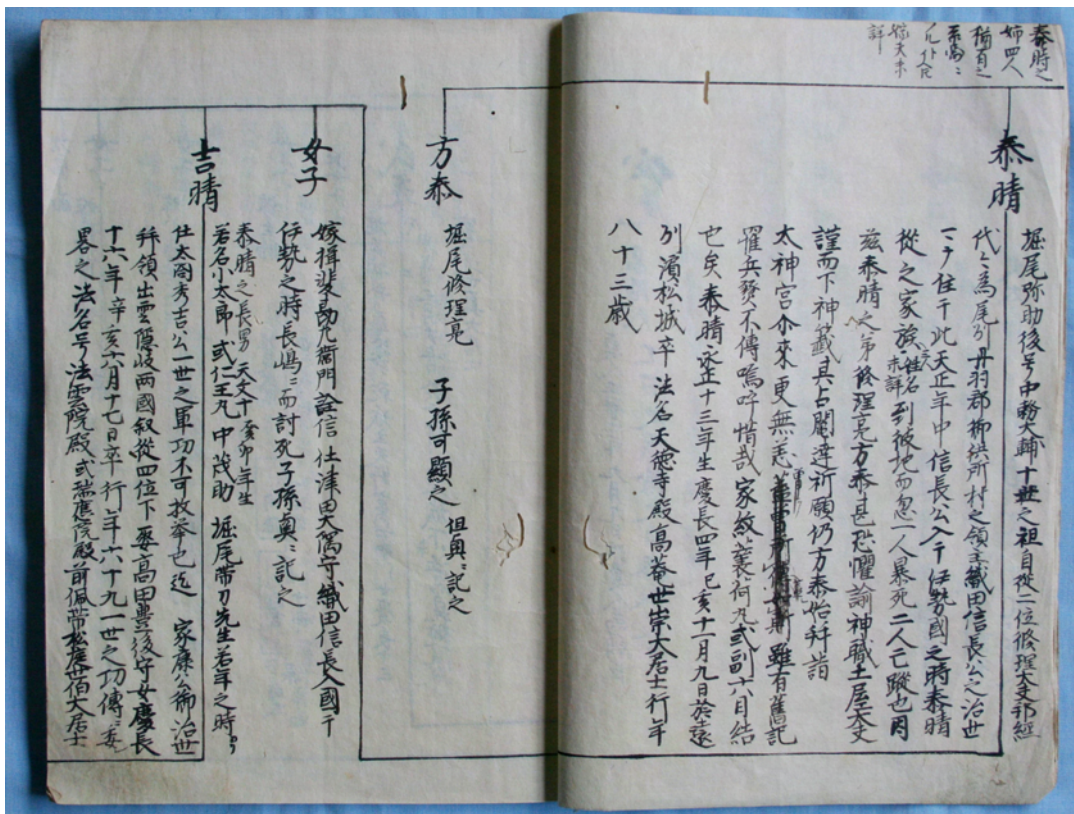 泰時之
姉四人
泰晴
堀尾弥助後号中務大輔十世之祖自從二位修理大夫邦経
代々為尾刕丹羽郡御供所村之領主織田信長公之治世
マテ住于此天正年中信長公入于伊勢國之時泰晴
從之家族三人姓名未詳到彼地而忽一人暴死二人亡蹤也因
茲泰晴之弟修理亮方泰甚恐懼諭神職土屋太夫
謹而下神籤其占闇違祈願仍方泰怡科詣
太神宮尒来更無恙 雖有舊記
罹兵燹不傳嗚呼惜哉家紋蘘荷丸或副六月結
也矣泰晴永正十三年生慶長四年己亥十一月九日於遠
刕濱松城卒法名天徳寺殿高菴世崇大居士行年
八十三歳
方泰
堀尾修理亮 子孫可顯之 但奥ニ記之
女子
嫁揖斐勘左衞門詮信仕津田大隅守織田信長入國于
伊勢之時長嶋ニ而討死子孫奥ニ記之
吉晴
泰晴之長男天文十二癸卯年生
若名小太郎或仁王丸中茂助 堀尾帯刀先生若年之時ヨリ
仕太閤秀吉公一世之軍功不可枚挙也迄 家康公御治世
拜領出雲隠岐両國叙從四位下娶高田豊後守女慶長
十六年辛亥六月十七日卒行年六十九一世之功傳ニ委
畧之法名号法雲院殿或瑞應院殿前佩帯松庭世伯大居士